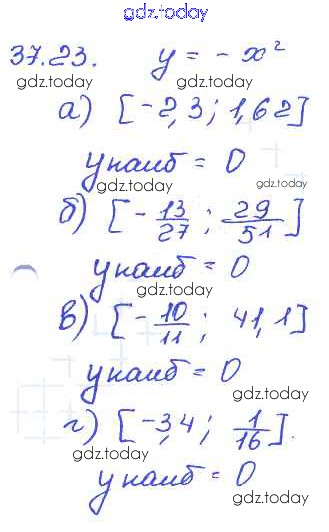 gdz.today
37.23. y = - x²
gdz.today gdz.today
а) [-2,3; 1,62]
gdz.today
y наиб = 0
gdz.today gdz.today
б) [-13/27; 29/51]
gdz.today
y наиб = 0
gdz.today
в) [-10/11; 41,1]
gdz.today
y наиб = 0
gdz.today
г) [-3,4; 1/16].
gdz.today
y наиб = 0
gdz.today